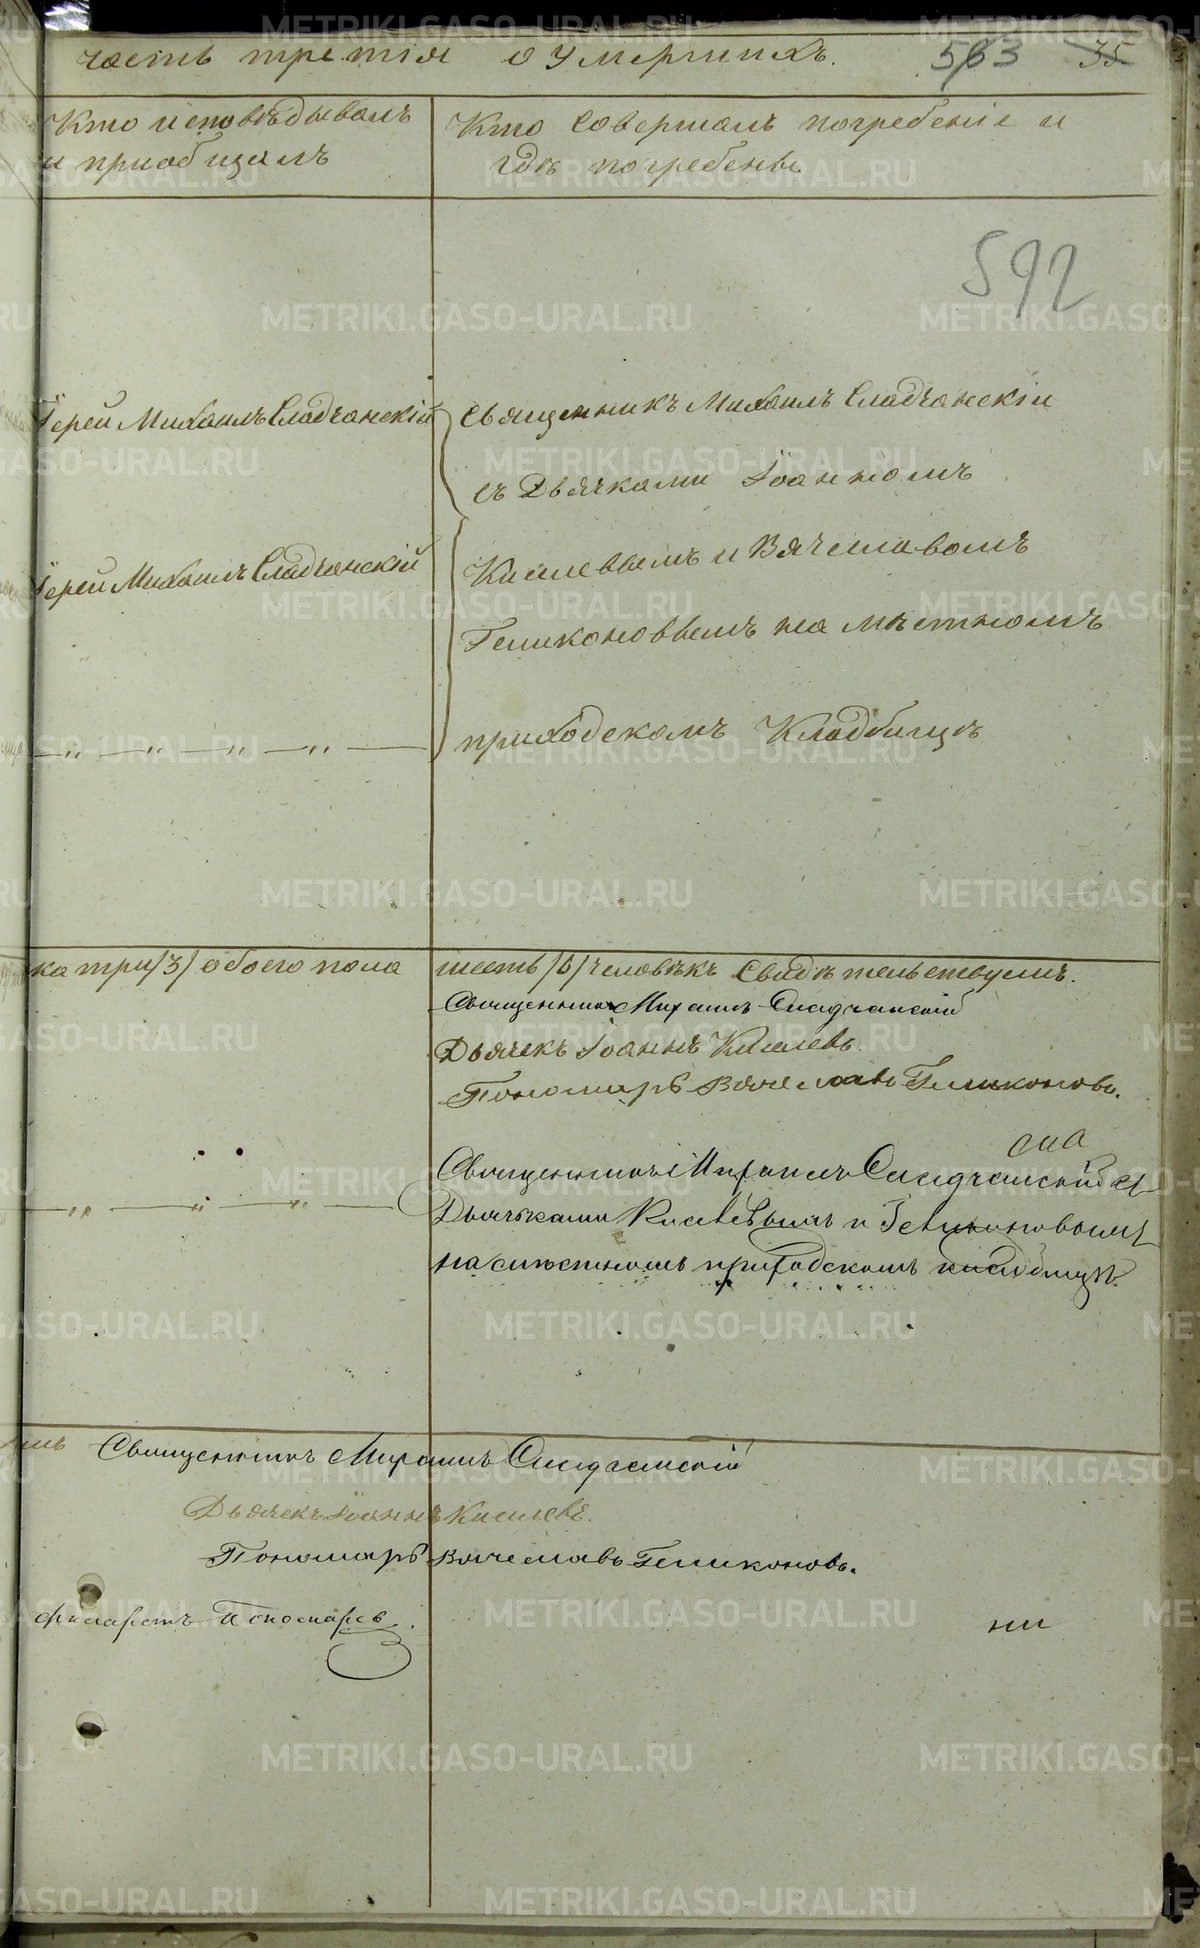 часть третія о умершихъ. 563 35
Кто исповѣдывалъ
и приобщалъ
Кто совершалъ погребеніе и
гдѣ погребены
592
Іерей Михаилъ Сладчанскій
Священникъ Михаилъ Сладчанскій
съ Дьячками Іоанномъ
Іерей Михаилъ Сладчанскій
Киселевымъ и Вячеславомъ
Геликоновымъ на мѣстномъ
приходскомъ Кладбищѣ
ка три /3/ обоего пола шесть /6/ человѣкъ Свидѣтельствуемъ.
Священникъ Михаилъ Сладчанскій
Дьячекъ Іоаннъ Киселевъ
Пономарь Вячеславъ Геликоновъ.
Священникъ Михаилъ Сладчанскій съ
Дьячками Киселевымъ и Геликоновымъ
на мѣстномъ приходскомъ кладбищѣ.
Священникъ Михаилъ Сладчанскій
Дьячекъ Іоаннъ Киселевъ.
Пономарь Вячеславъ Геликоновъ.
Филаретъ Пономаревъ.
ни
METRIKI.GASO-URAL.RU